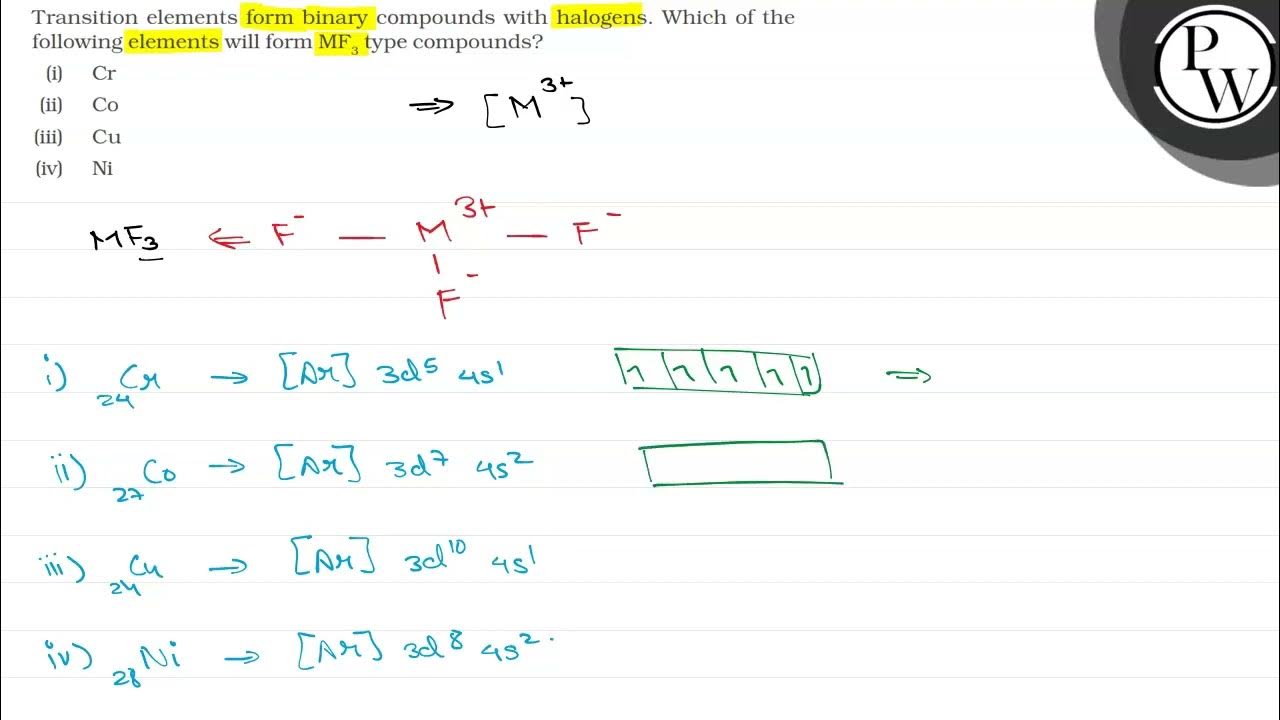 Transition elements form binary compounds with halogens. Which of the
following elements will form MF₃ type compounds?
(i) Cr
(ii) Co
(iii) Cu
(iv) Ni
⇒ [M³⁺]
PW
MF₃ ⇐ F⁻ — M³⁺ — F⁻
F⁻
i) ₂₄Cr → [Ar] 3d⁵ 4s¹ 1 1 1 1 1 ⇒
ii) ₂₇Co → [Ar] 3d⁷ 4s²
iii) ₂₄Cu → [Ar] 3d¹⁰ 4s¹
iv) ₂₈Ni → [Ar] 3d⁸ 4s².